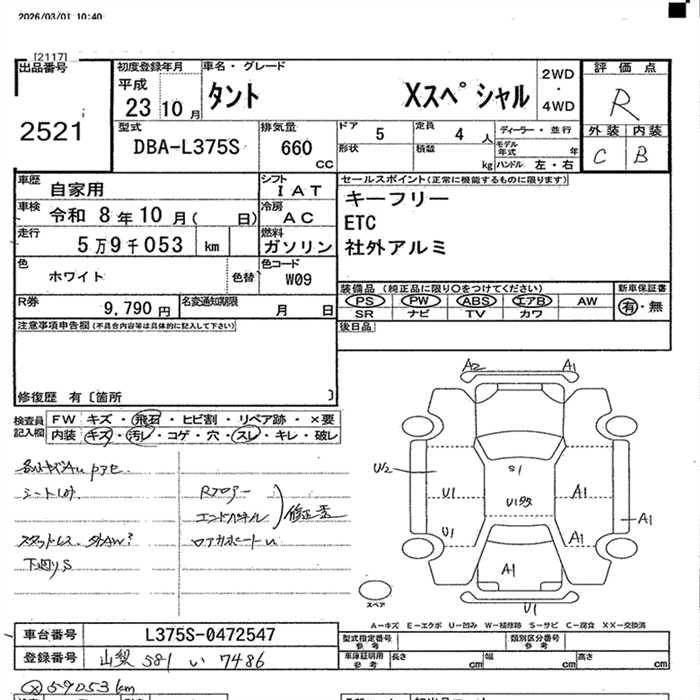 2026/03/01 10:40
[2117]
出品番号 2521
初度登録年月 平成 23 10 月
車名・グレード タント Xスペシャル
2WD・4WD
評価点 R
外装 内装
C B
型式 DBA-L375S
排気量 660 cc
ドア 5
形状
定員 4 人
積載 kg
ディーラー・並行
モデル年式 年
ハンドル 左・右
車歴 自家用
シフト IAT
車検 令和 8 年 10 月( 日)
冷房 AC
走行 5万9千053 km
燃料 ガソリン
色 ホワイト 色替
色コード W09
R券 9,790 円
名変通知期限 月 日
セールスポイント(正常に機能するものに限ります)
キーフリー
ETC
社外アルミ
装備品 (純正品に限り○をつけてください)
新車保証書
PS PW ABS エアB AW
有・無
SR ナビ TV カワ
後日品
注意事項申告欄(不具合内容等は具体的に記入して下さい)
修復歴 有〔箇所 〕
検査員記入欄
FW キズ・飛石・ヒビ割・リペア跡・×要
内装 キズ・汚レ・コゲ・穴・スレ・キレ・破レ
Rフロアー
エンドパネル
下廻りS
A2 A1
U2
S1
U1
A1
U1
A1
A1
A1
U1
スペア
A-キズ E-エクボ U-凹み W-補修跡 S-サビ C-腐食 XX-交換済
車台番号 L375S-0472547
登録番号 山梨 581 い 7486
型式指定番号 参考
類別区分番号 参考
車庫証明用 参考
長さ cm 幅 cm 高さ cm
59053km